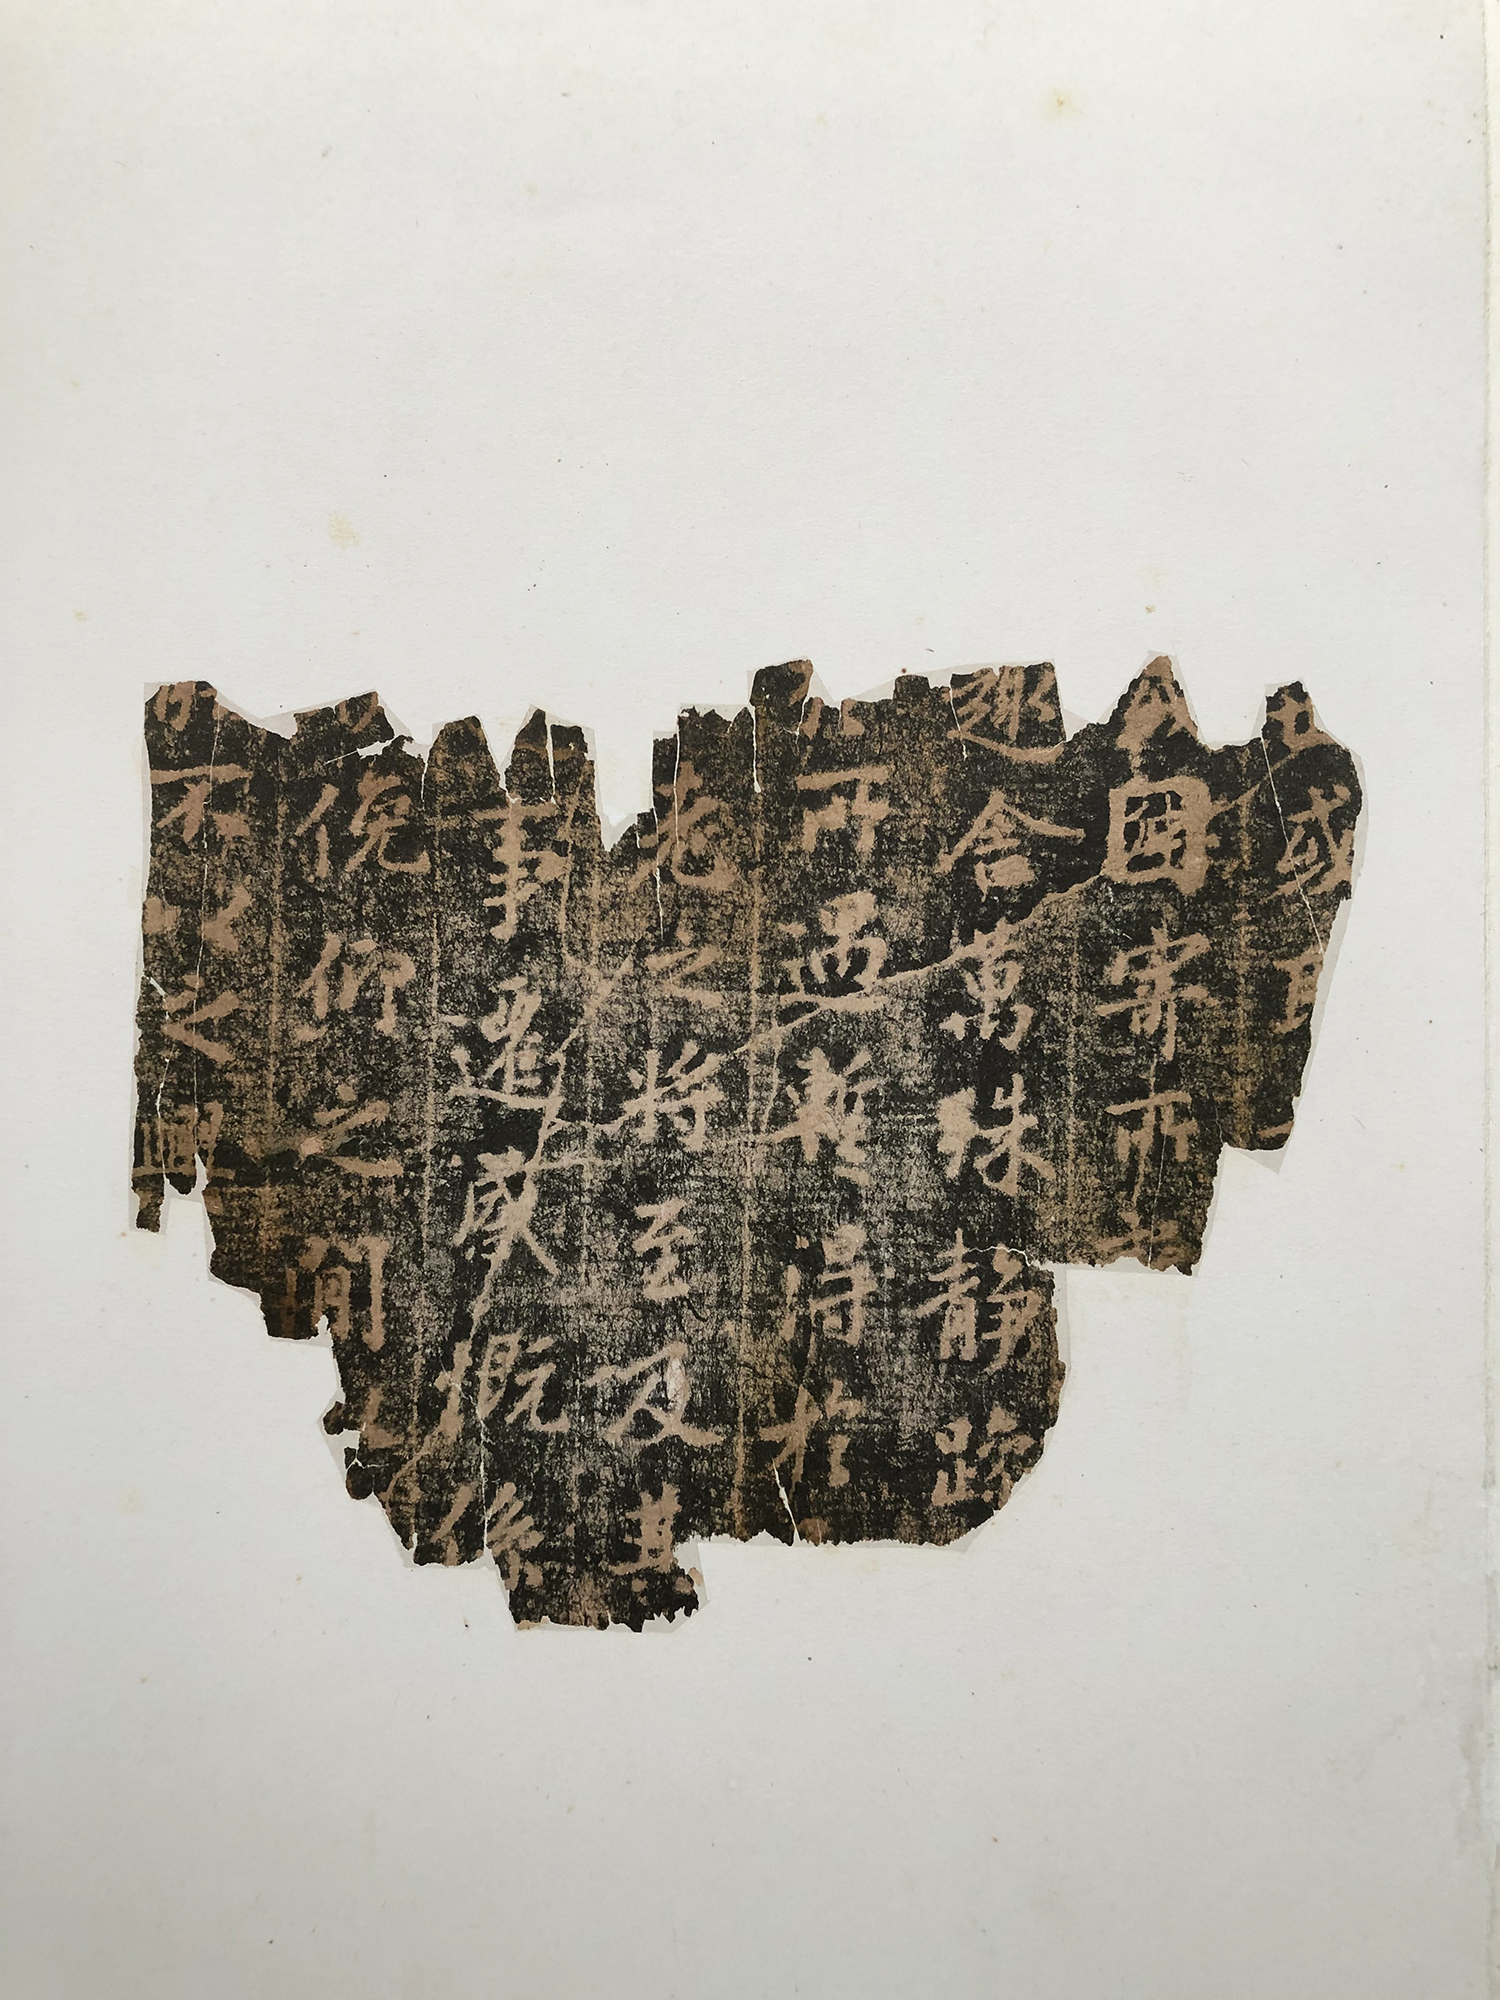 世或取
因寄所託
趣舍萬殊靜躁
於所遇暫得於
老之將至及其
事遷感慨係
俛仰之間以
不以之興